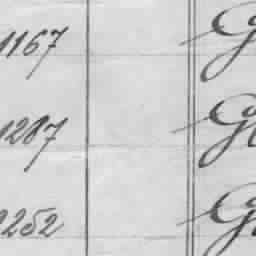 1167 G
1287 G
2252 G